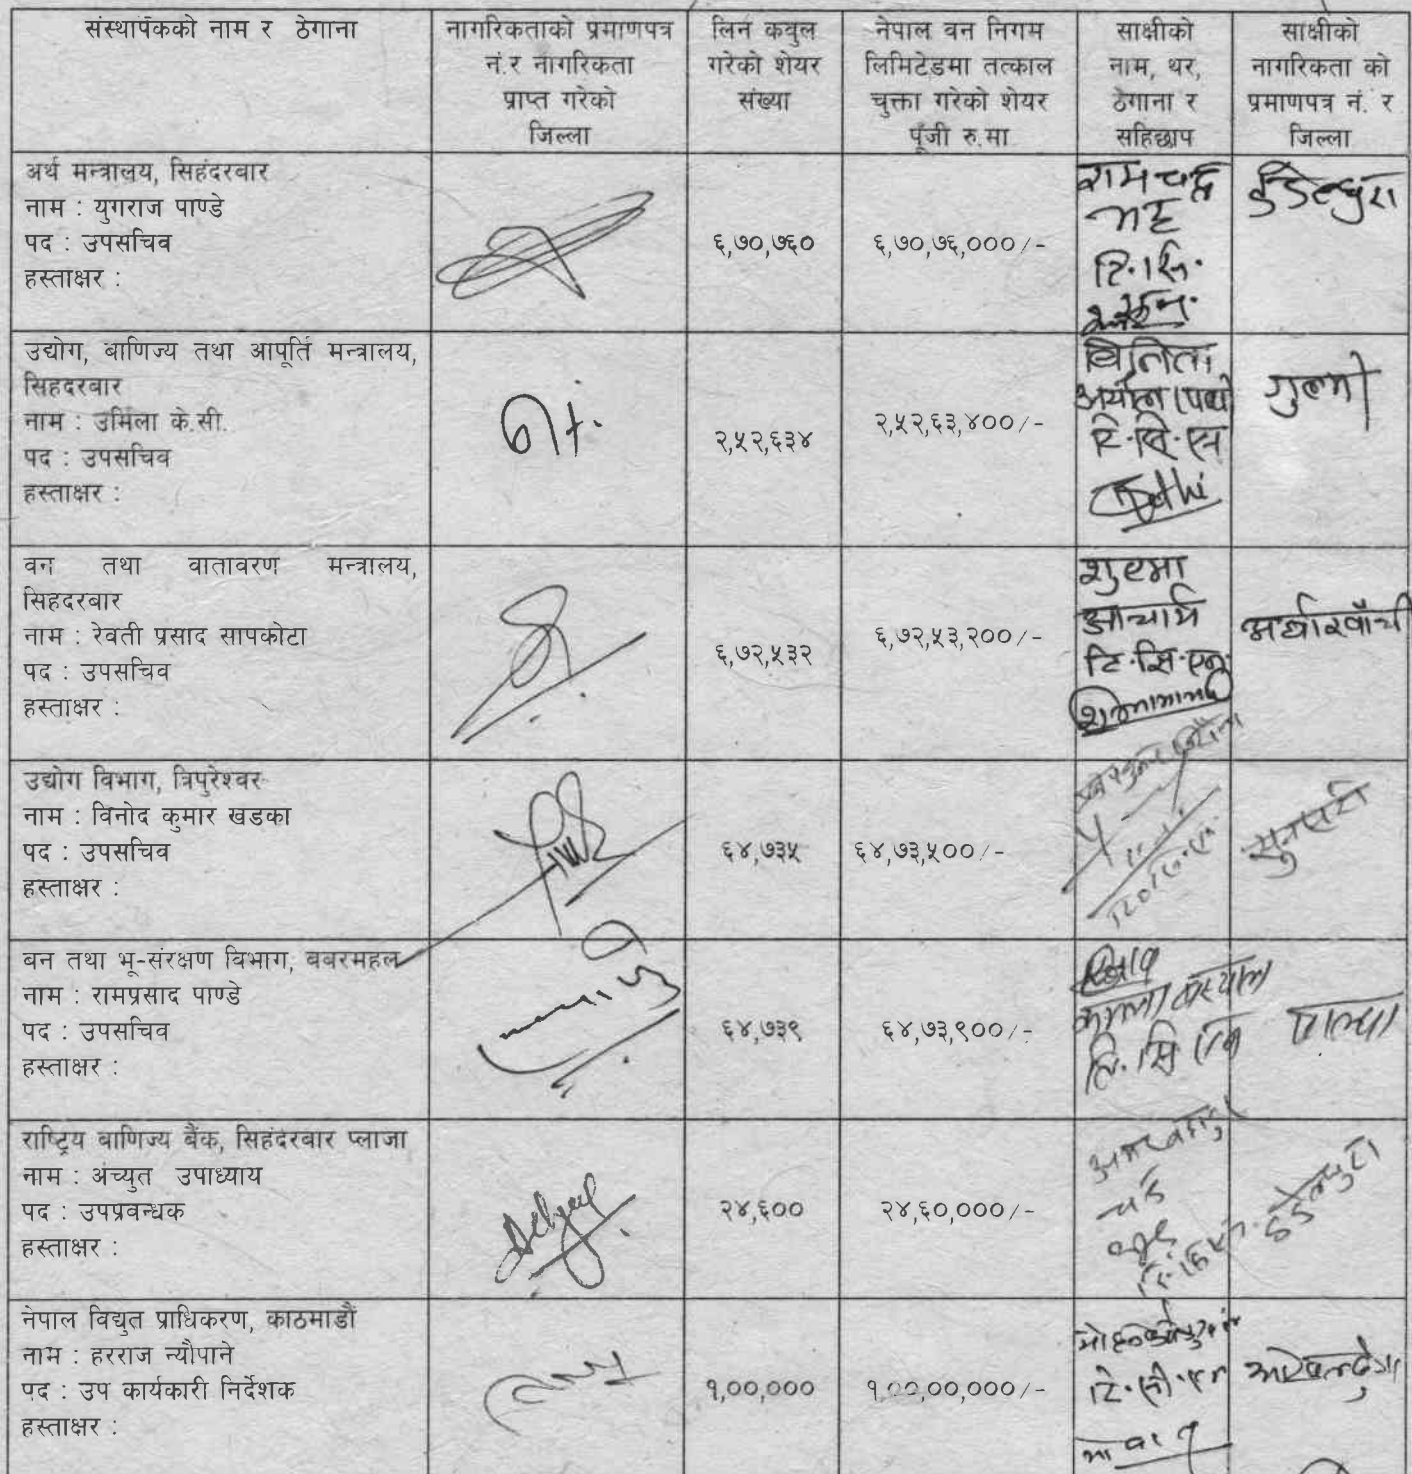 संस्थापकको नाम र ठेगाना
नागरिकताको प्रमाणपत्र
नं.र नागरिकता
प्राप्त गरेको
जिल्ला
लिन कवुल
गरेको शेयर
संख्या
नेपाल वन निगम
लिमिटेडमा तत्काल
चुक्ता गरेको शेयर
पूंजी रु.मा
साक्षीको
नाम, थर,
ठेगाना र
सहिछाप
साक्षीको
नागरिकता को
प्रमाणपत्र नं. र
जिल्ला
अर्थ मन्त्रालय, सिहंदरवार
नाम : युगराज पाण्डे
पद : उपसचिव
हस्ताक्षर :
६,७०,७६०
६,७०,७६,०००/-
रामचन्द्र
भट्ट
उद्योग, बाणिज्य तथा आपूर्ति मन्त्रालय,
सिहदरबार
नाम : उर्मिला के.सी.
पद : उपसचिव
हस्ताक्षर :
२,५२,६३४
२,५२,६३,४००/-
गुल्मी
वन तथा वातावरण मन्त्रालय,
सिहदरबार
नाम : रेवती प्रसाद सापकोटा
पद : उपसचिव
हस्ताक्षर :
६,७२,५३२
६,७२,५३,२००/-
आचार्य
टि.सि.एन.
उद्योग विभाग, त्रिपुरेश्वर
नाम : विनोद कुमार खडका
पद : उपसचिव
हस्ताक्षर :
६४,७३५
६४,७३,५००/-
सुनसरी
बन तथा भू-संरक्षण विभाग, बबरमहल
नाम : रामप्रसाद पाण्डे
पद : उपसचिव
हस्ताक्षर :
६४,७३९
६४,७३,९००/-
पाल्पा
राष्ट्रिय बाणिज्य बैंक, सिहंदरबार प्लाजा
नाम : अंच्युत उपाध्याय
पद : उपप्रवन्धक
हस्ताक्षर :
२४,६००
२४,६०,०००/-
नेपाल विद्युत प्राधिकरण, काठमाडौं
नाम : हरराज न्यौपाने
पद : उप कार्यकारी निर्देशक
हस्ताक्षर :
१,००,०००
१,००,००,०००/-